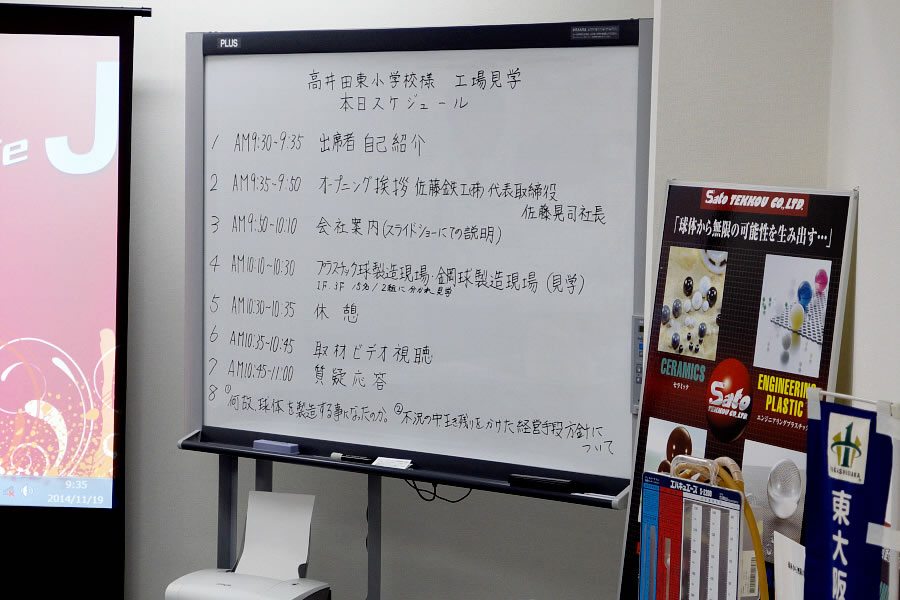 J
9:35
2014/11/19
PLUS
高井田東小学校様 工場見学
本日スケジュール
1 AM9:30~9:35 出席者 自己紹介
2 AM9:35~9:50 オープニング挨拶 佐藤鉄工(株)代表取締役
佐藤晃司社長
3 AM9:50~10:10 会社案内(スライドショーにての説明)
4 AM10:10~10:30 プラスチック球製造現場・金鋼球製造現場(見学)
1F 3F 15名/2組に分かれ見学
5 AM10:30~10:35 休憩
6 AM10:35~10:45 取材ビデオ視聴
7 AM10:45~11:00 質疑応答
8 ①何故、球体を製造する事になったのか。②不況の中生き残りをかけた経営手段方針に
ついて
Sato TEKKOU CO.LTD.
「球体から無限の可能性を生み出す…」
CERAMICS
セラミック
Sato
TEKKOU CO.LTD.
ENGINEERING
PLASTIC
エンジニアリングプラスチック
エルキュエース S-2200
東大阪